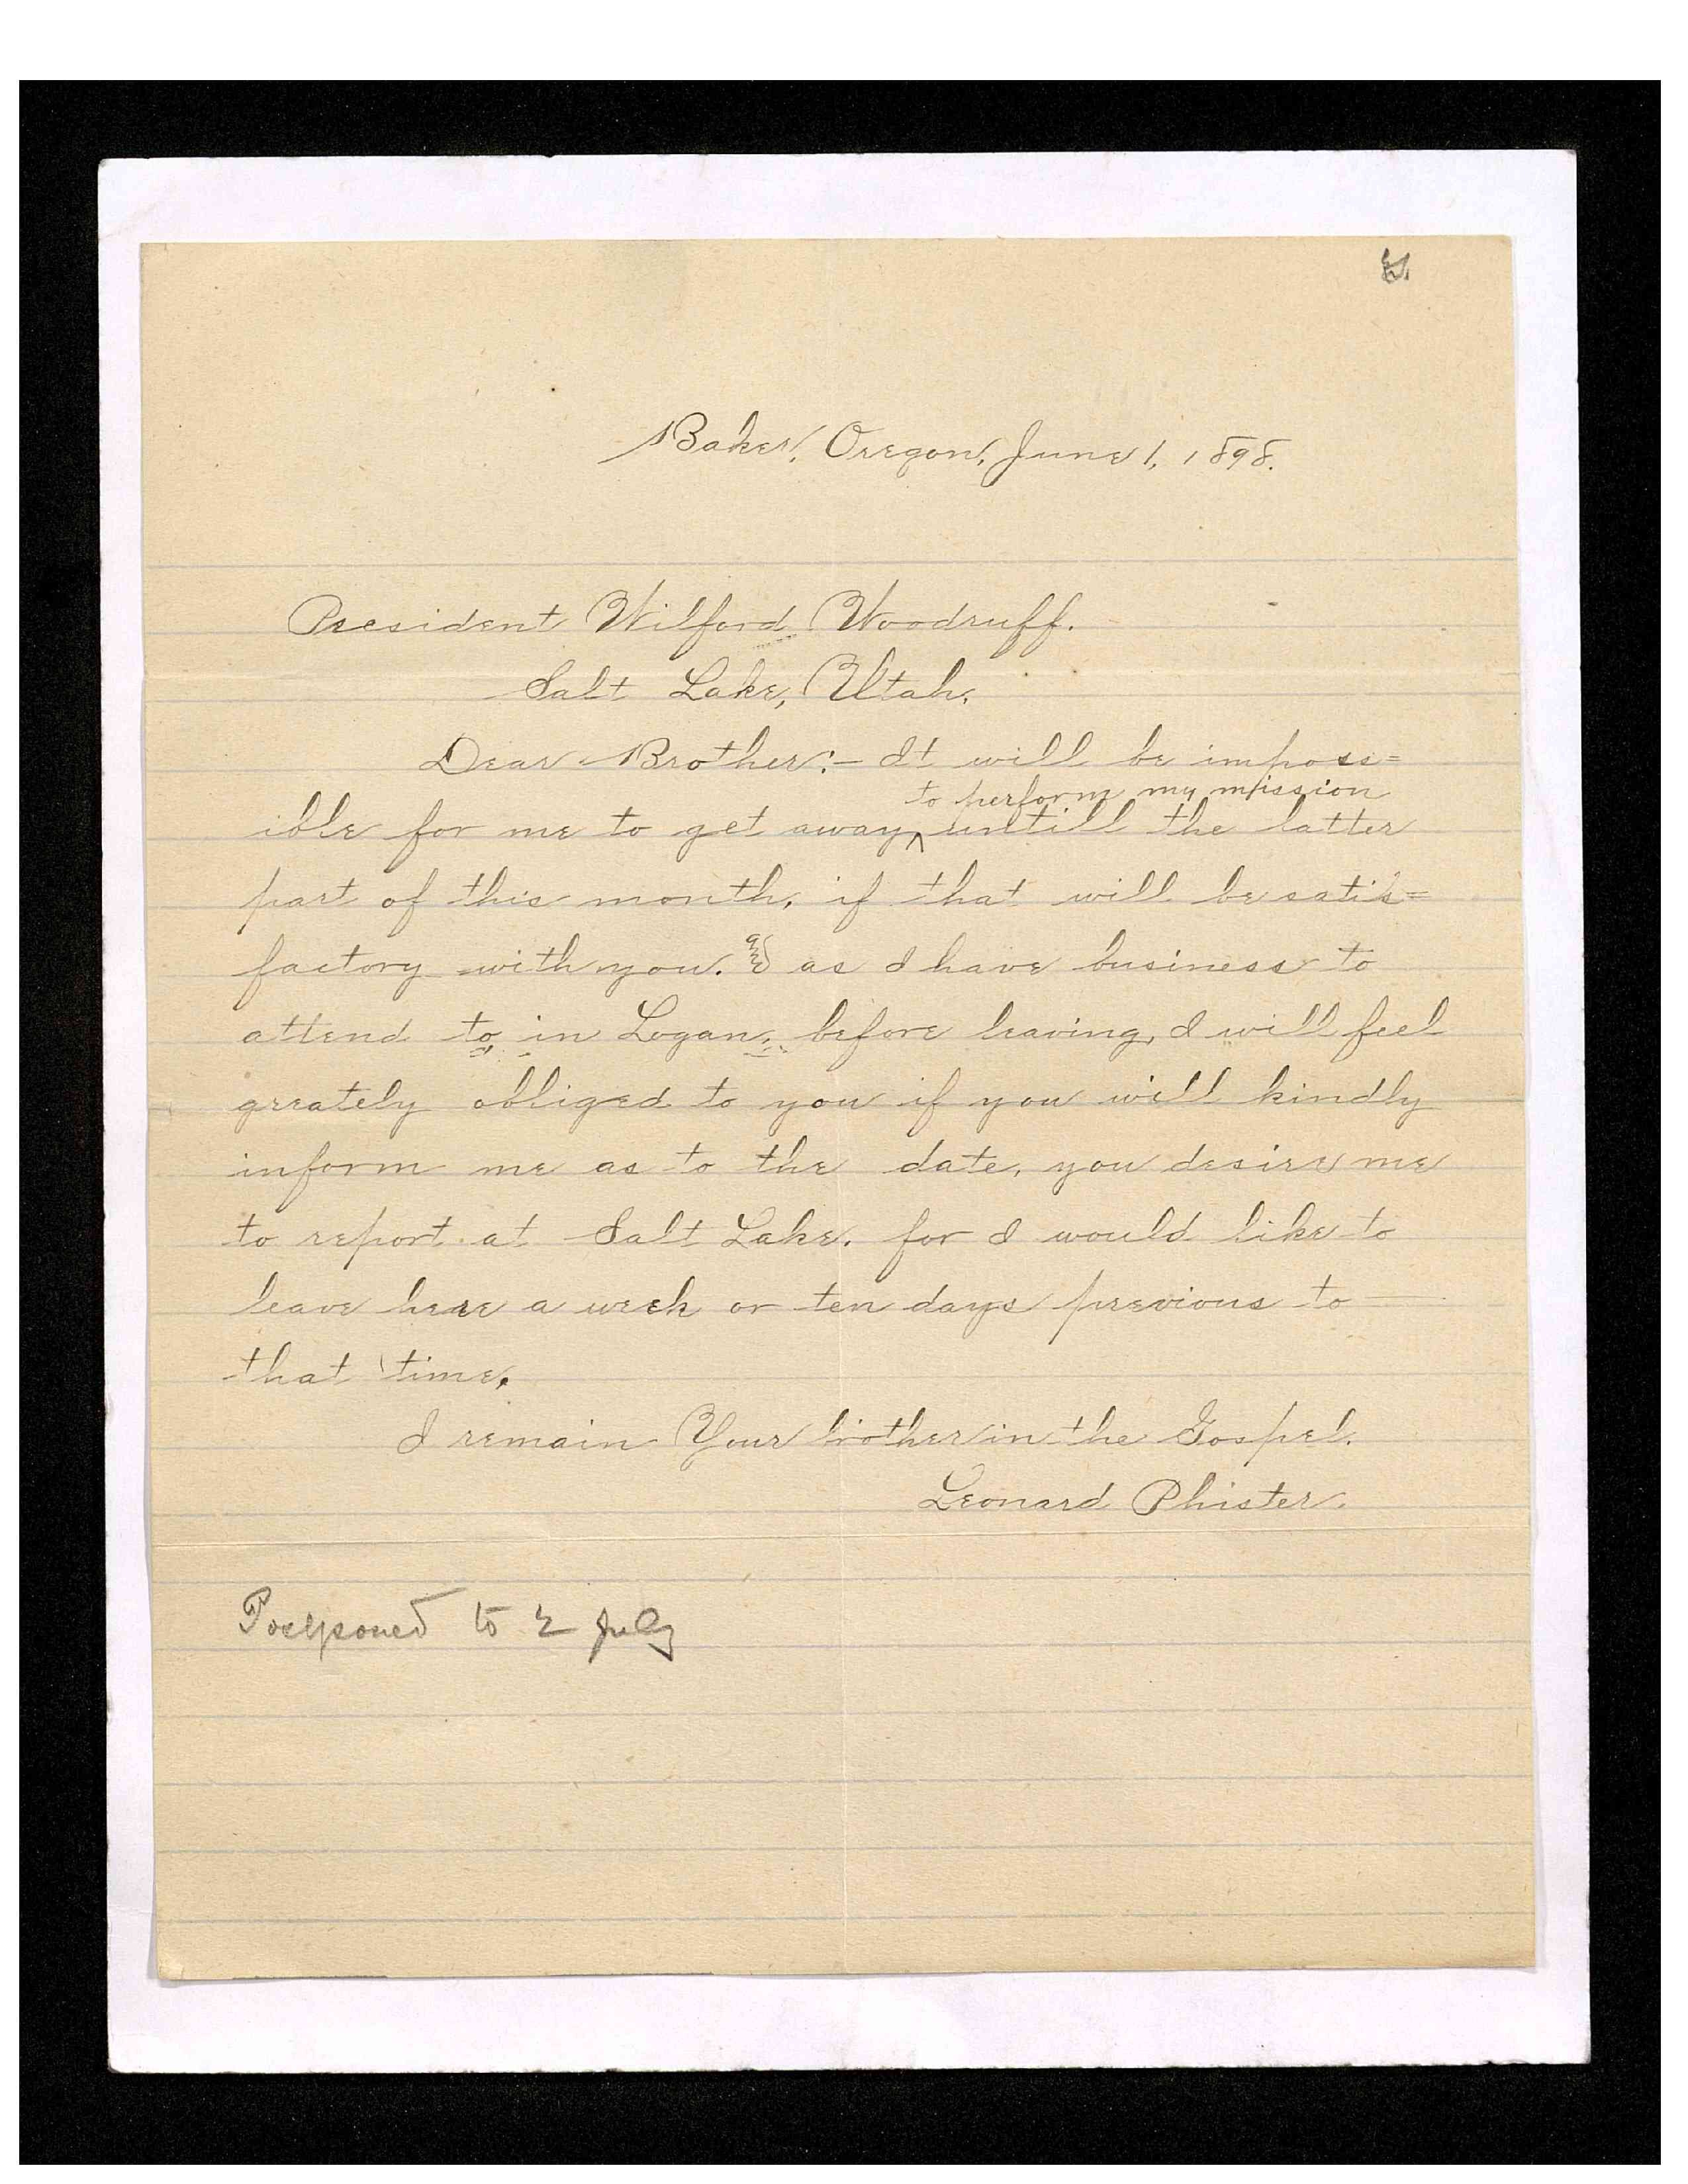 Baker, Oregon, June 1, 1898.
President Wilford Woodruff.
Salt Lake, Utah.
Dear Brother:- It will be imposs=
to perform my mission
ible for me to get away ^ untill the latter
part of this month, if that will be satis=
factory with you. and as I have business to
attend to in Logan, before leaving, I will feel
greately obliged to you if you will kindly
inform me as to the date, you desire me
to report at Salt Lake. for I would like to
leave here a week or ten days previous to
that time.
I remain Your brother in the Gospel.
Leonard Phister.
Postponed to 2 July